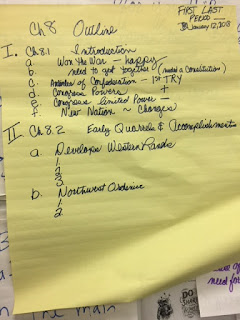 Ch 8 Outline
FIRST LAST
PERIOD
January 12, 2013
I. Ch 8.1 Introduction
a Won the War - happy
b need to get together (need a Constitution)
c. Articles of Confederation - 1st TRY
d. Congress Powers +
e. Congress limited Power -
f. New Nation ~ Changes
II Ch 8.2 Early Quarrels & Accomplishments
a. Develope Western Lands
1.
2
3
b. Northwest Ordinance
1
2
The main
need for